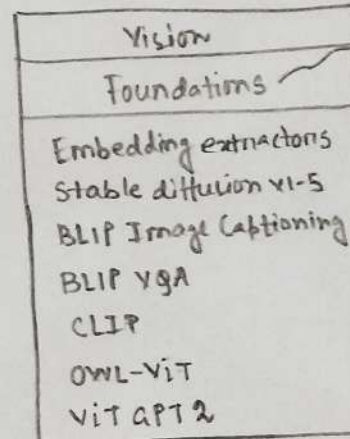 Vision
Foundations
Embedding extractors
Stable diffusion v1-5
BLIP Image Captioning
BLIP VQA
CLIP
OWL-ViT
ViT GPT2